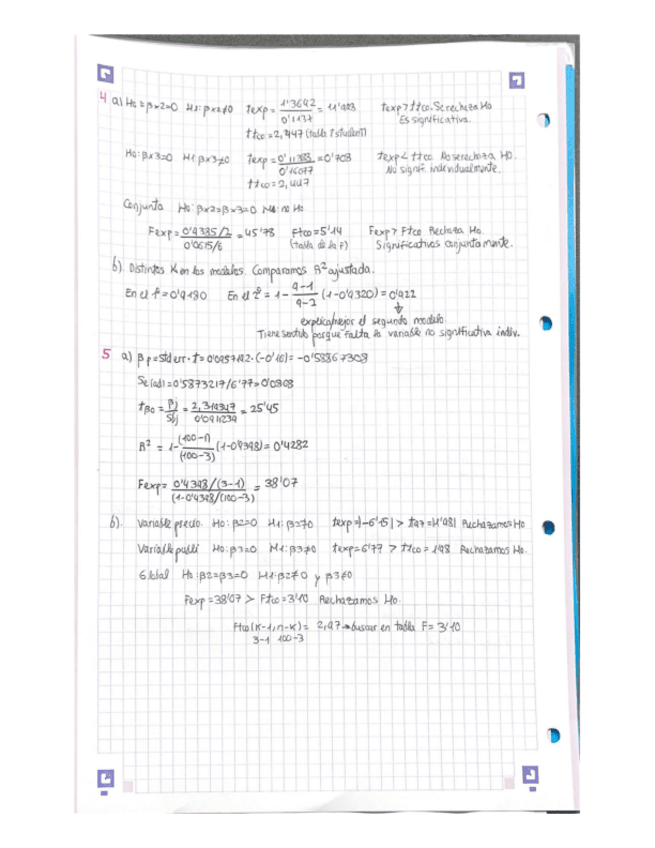 4 a) Ho = βx2=0 H1: βx2≠0 texp = 1'3642 / 0'1137 = 11'983 texp > ttco. Se rechaza Ho
Es significativa.
ttco = 2,447 (tabla t student)
Ho: βx3=0 H1 βx3≠0 texp = 0'11383 / 0'16077 = 0'708 texp < ttco. No se rechaza HO.
No signif. individualmente.
ttco = 2,447
Conjunta Ho: βx2=βx3=0 H1: no Ho
Fexp = 0'9385/2 / 0'0615/6 = 45'78 Ftco = 5'14 Fexp > Ftco Rechaza Ho.
(tabla de la F) Significativas conjuntamente.
b). Distintos K en los modelos. Comparamos R² ajustada.
En el 1º = 0'9180 En el 2º = 1 - 9-1 / 9-2 (1-0'9320) = 0'922
explica mejor el segundo modelo.
Tiene sentido porque falta la variable no significativa indiv.
5 a) βp = std err · t = 0'0957192 · (-6'15) = -0'58867308
Se(ad) = 0'5873217/6'77 = 0'0868
tβo = βj / Sbj = 2,319347 / 0'0911239 = 25'45
R² = 1 - (100-1) / (100-3) (1-0'4398) = 0'4282
Fexp = 0'4398/(3-1) / (1-0'4398/(100-3) = 38'07
b). Variable precio. Ho: β2=0 H1: β2≠0 texp = |-6'15| > t97 = |1'98| Rechazamos Ho
Variable publi Ho: β3=0 H1: β3≠0 texp = 6'77 > ttco = 1'98 Rechazamos Ho.
Global Ho: β2=β3=0 H1: β2≠0 y β3≠0
Fexp = 38'07 > Ftco = 3'10 Rechazamos Ho.
Ftco (K-1, n-K) = 2,97 → buscar en tabla F = 3'10
3-1 100-3